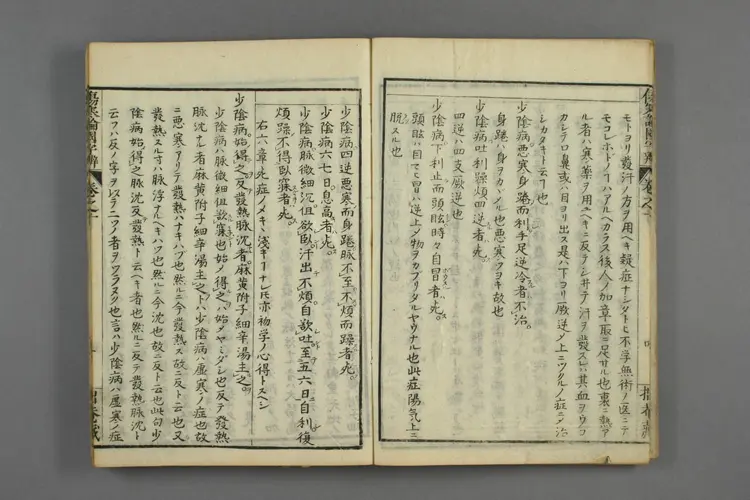 モトヨリ發汗ノ方ヲ用ヘキ殺症ナシタトヒ不學無術ノ医ニテ
モコレホドノヿハアルヘカラス後人ノ加章取ニ足サル也裏ニ熱ア
ル者ハ寒薬ヲ用ユヘキニ反テシ井テ汗ヲ發スレハ其血ヲウコ
カシテロ鼻或ハ目ヨリ出ス是ハ下コリ厥逆メ上ニツクルノ症ニメ治
シカタキト云フ也
少陰病悪寒身踡而利手足逆冷者不治。
身踡ハ身ヲカヾルノル也悪寒フカキ故也
少陰病吐利躁煩四逆者死。
四逆ハ四支厥逆也
少陰病下利止而頭眩時々自冒者死。
頭眩ハ目マヒ冒ハ逆上メ物ヲカフリタルヤウナル也此症陽気上ニ
脱スル也
少陰病四逆悪寒而身踡脉不至不煩而躁者死。
少陰病六七日息高者死。
少陰病脉微細沉但欲臥。汗出不煩。自欲吐至五六日自利復
煩躁不得臥寐者死。
右六章死症ノメキヽ淺キヿナレ𪜈亦初学ノ心得トスヘシ
少陰病始得之反發熱脉沈者。麻黄附子細辛湯主之。
少陰病ハ脉微細但欲寐也始メ得之ハ始メヤミダシ也反テ發熱
脉沈ナル者麻黄附子細辛湯主之トハ少陰病ハ虚寒ノ症也故
ニ悪寒アリテ發熱ハナキハヅ也然ルニ今發熱ス故ニ反ト云也又
發熱スルオハ脉浮ナルヘキハツ也然ルニ今沈也故ニ反ト云也此句少
陰病始得之脉沈反發熱ト云ヘキ者也然ルニ反發熱脉沈ト
云フハ反ノ字ヲ以テ二ツノ者ヲツラヌク也言ハ少陰病ハ虚寒ノ症